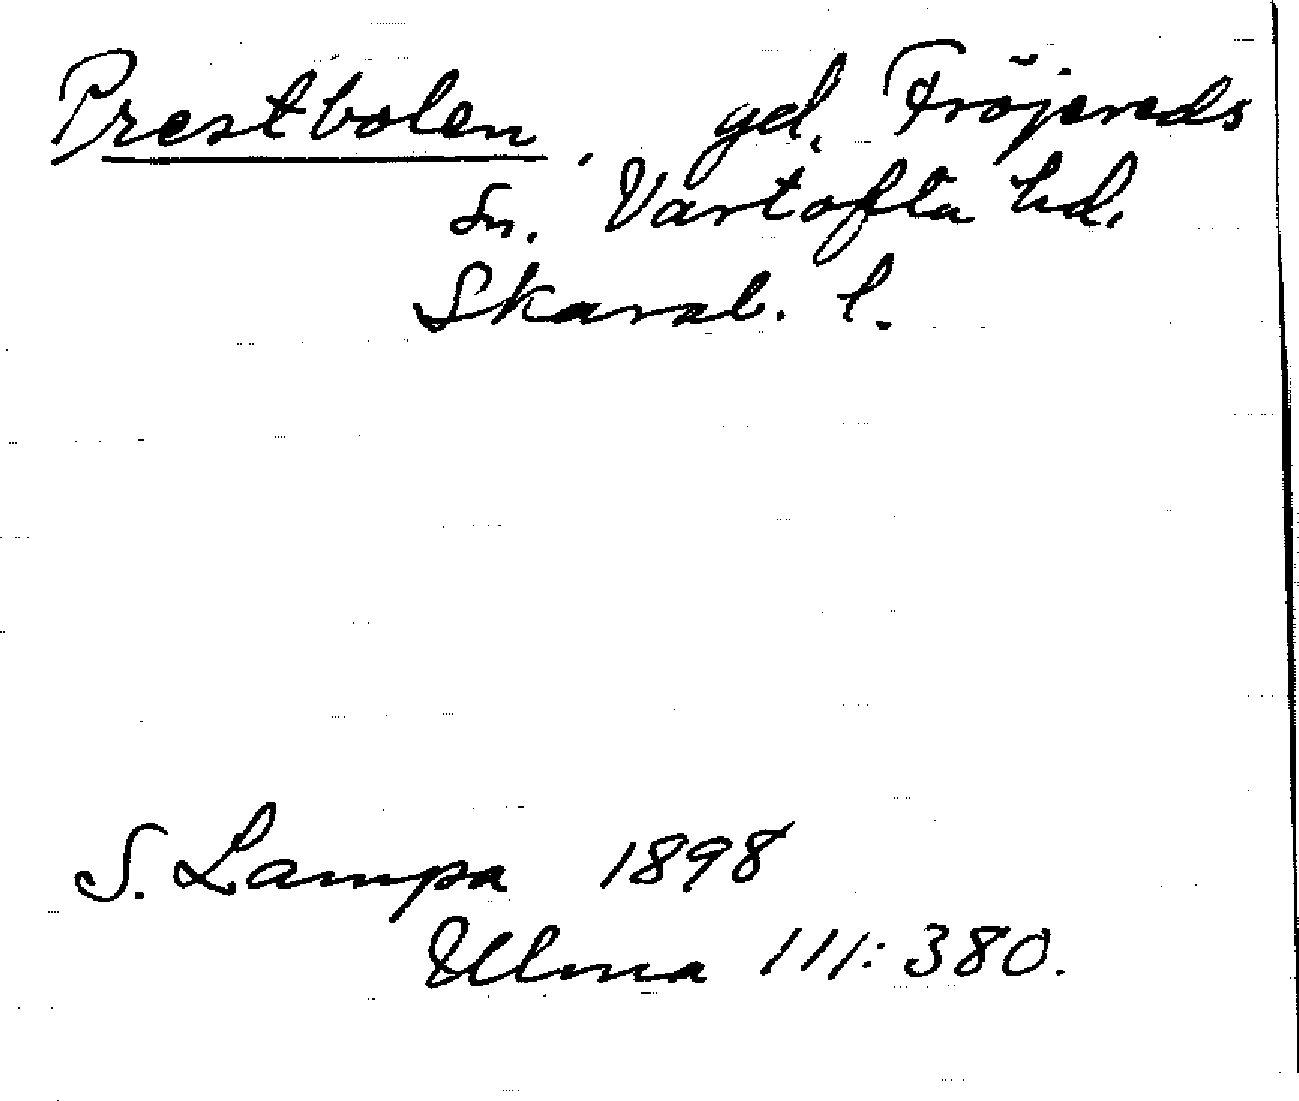 Prestbolen, gd. Fröjereds
sn. Vartofta hd.
Skarab. l.
S. Lampa 1898
Ulma 111:380.